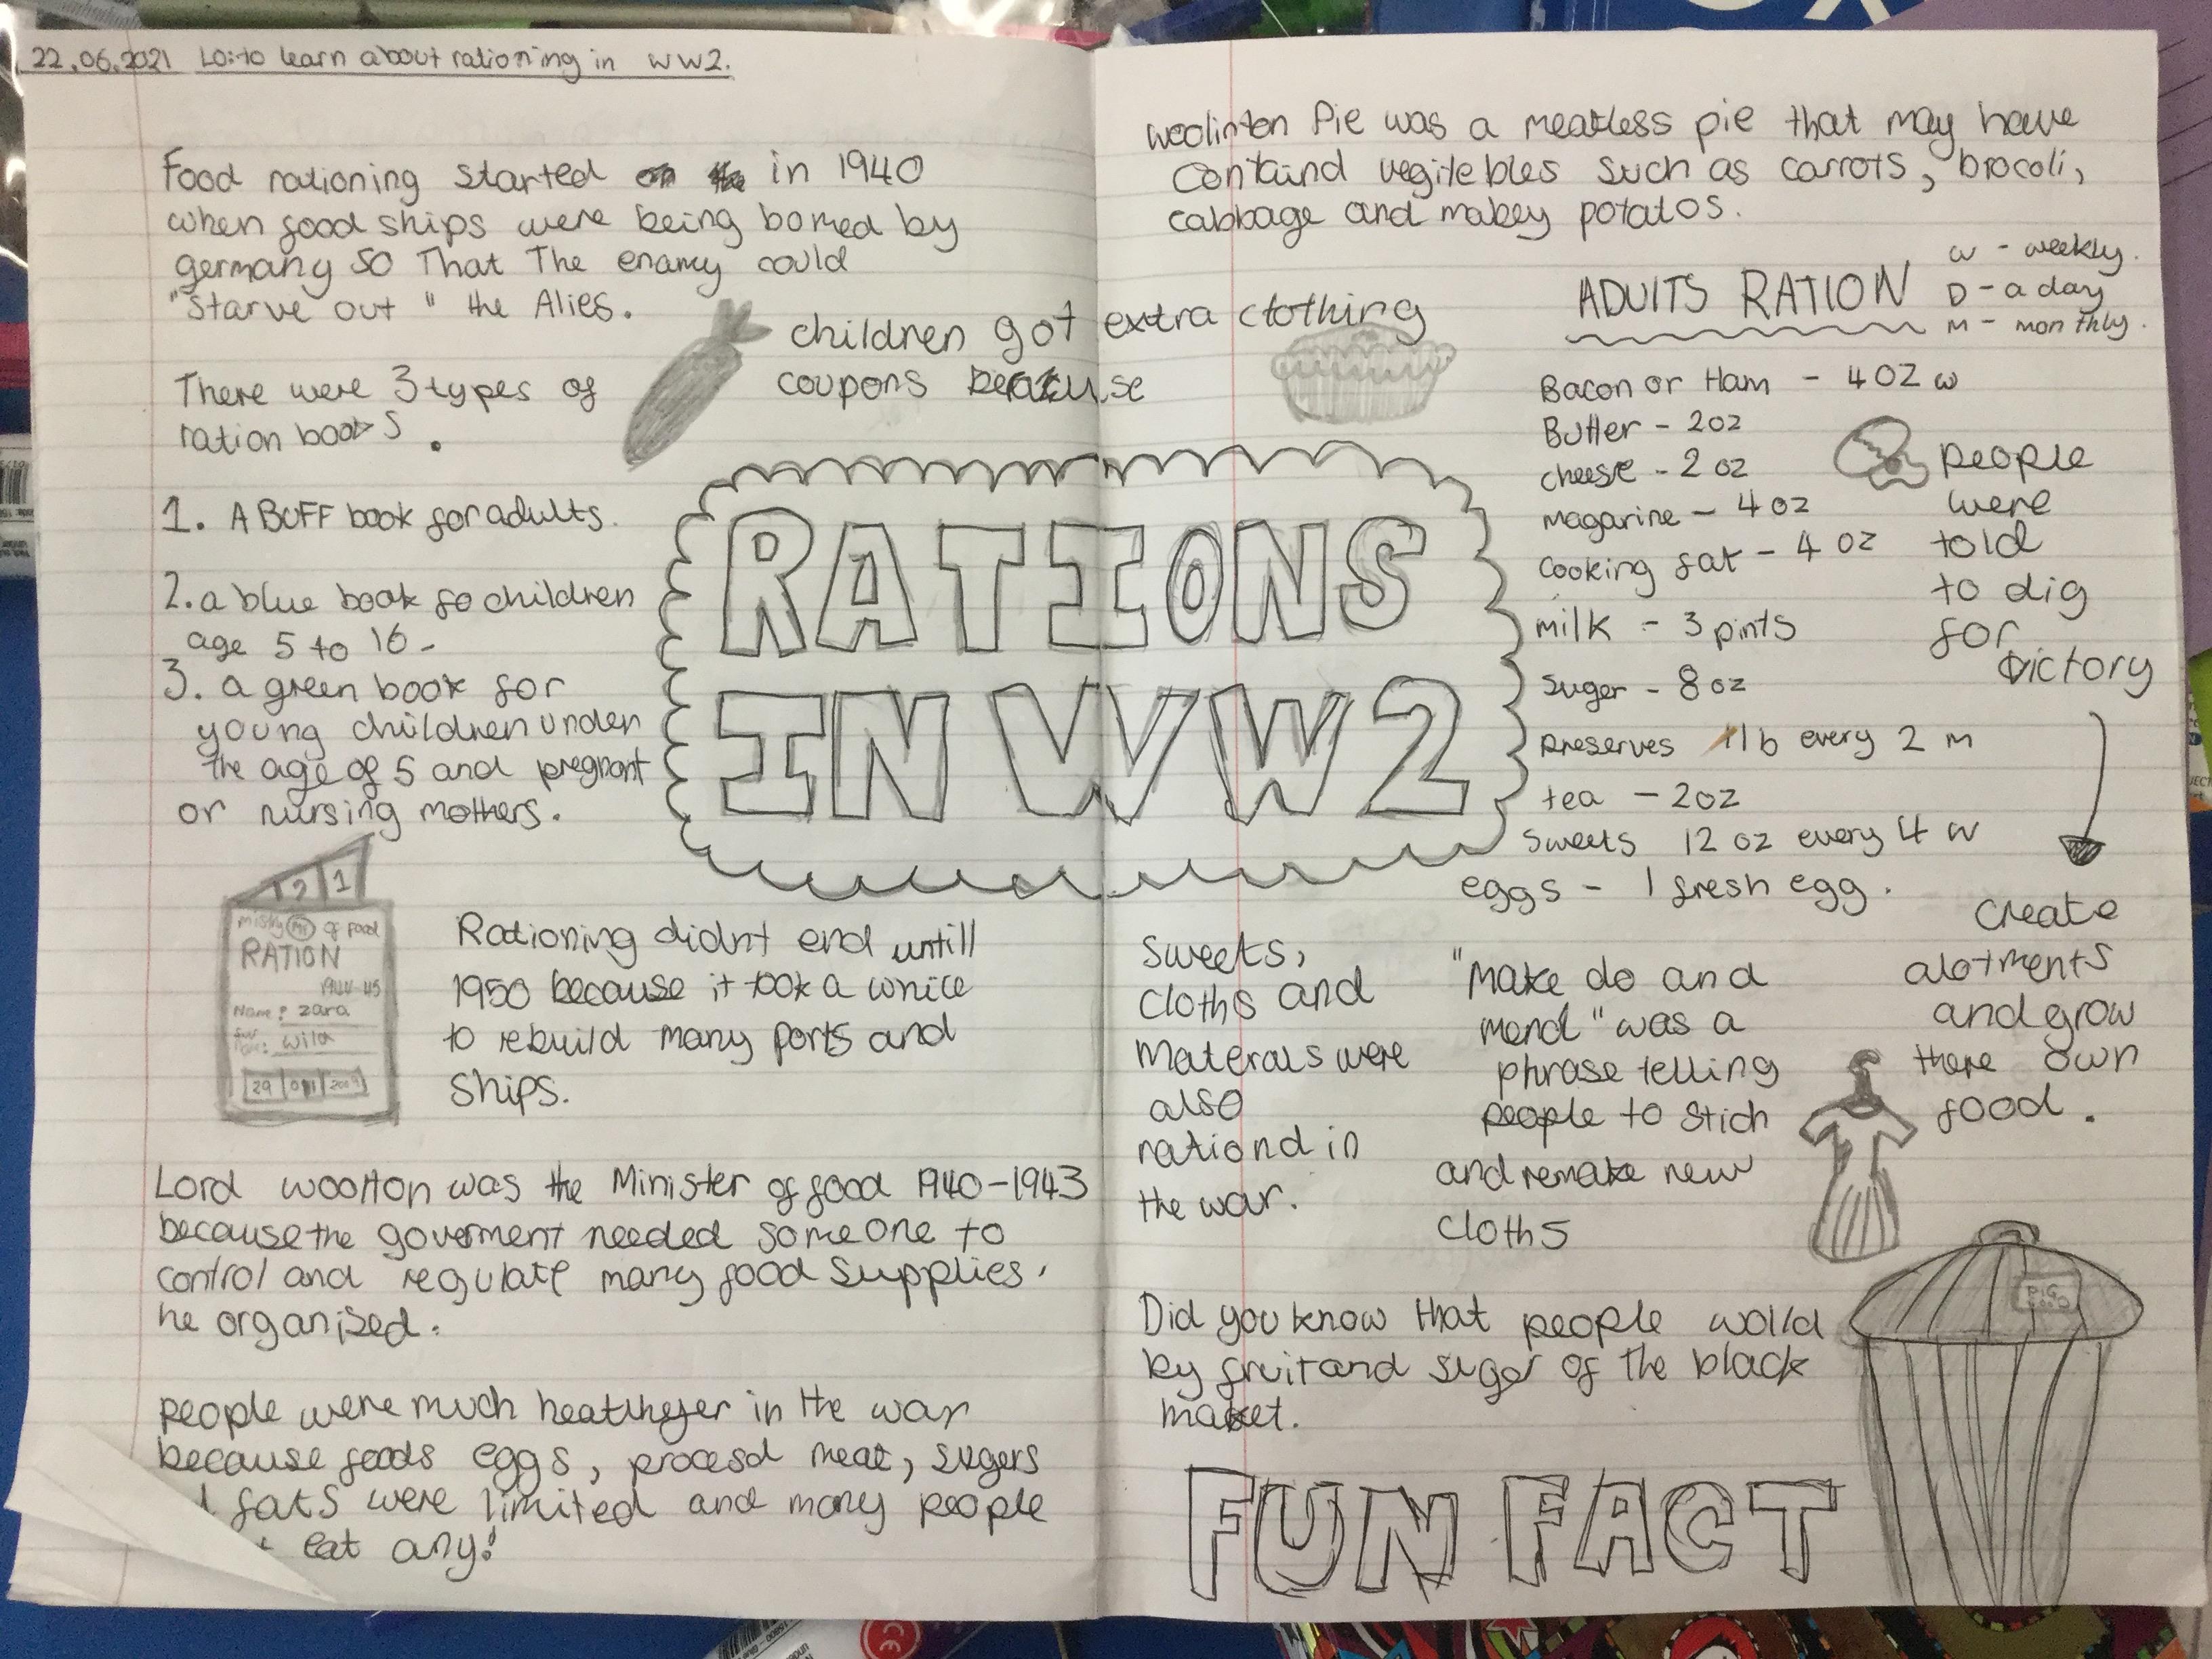 22.06.2021 LO: to learn about rationing in WW2.
Food rationing started in 1940
when food ships were being bomed by
germany SO That The enamy could
"starve out" the Alies.
There were 3 types of
ration books.
1. A BUFF book for adults.
2. a blue book fo children
age 5 to 16 -
3. a green book for
young children under
the age of 5 and pregnant
or nursing mothers.
2 1
of food
RATION
1944-45
Name: zara
wild
29 2009
Rationing didnt end untill
1950 because it took a while
to rebuild many ports and
ships.
Lord woolton was the Minister of food 1940-1943
because the goverment needed someone to
control and regulate many food supplies.
he organised.
people were much healthyer in the war
because foods eggs, procesd meat, sugers
fats were limited and many people
eat any!
children got extra clothing
coupons because
RATIONS
IN WW2
woolinton Pie was a meatless pie that may have
containd vegitebles such as carrots, brocoli,
cabbage and mabey potatos.
ADULTS RATION
w - weekly.
D - a day
M - monthly.
Bacon or Ham - 4 OZ w
Butter - 2oz
cheese - 2 oz
Magarine - 4 oz
Cooking fat - 4 oz
milk - 3 pints
Suger - 8 oz
Preserves 1lb every 2 m
tea - 2oz
Sweets 12 oz every 4 w
eggs - 1 fresh egg.
people
were
told
to dig
for
victory
create
alotments
and grow
there own
food.
Sweets,
cloths and
Materals were
also
rationd in
the war.
"Make do and
mend" was a
phrase telling
people to stich
and remake new
cloths
Did you know that people wolld
by fruit and suger of the black
market.
PIG
FOOD
FUN FACT